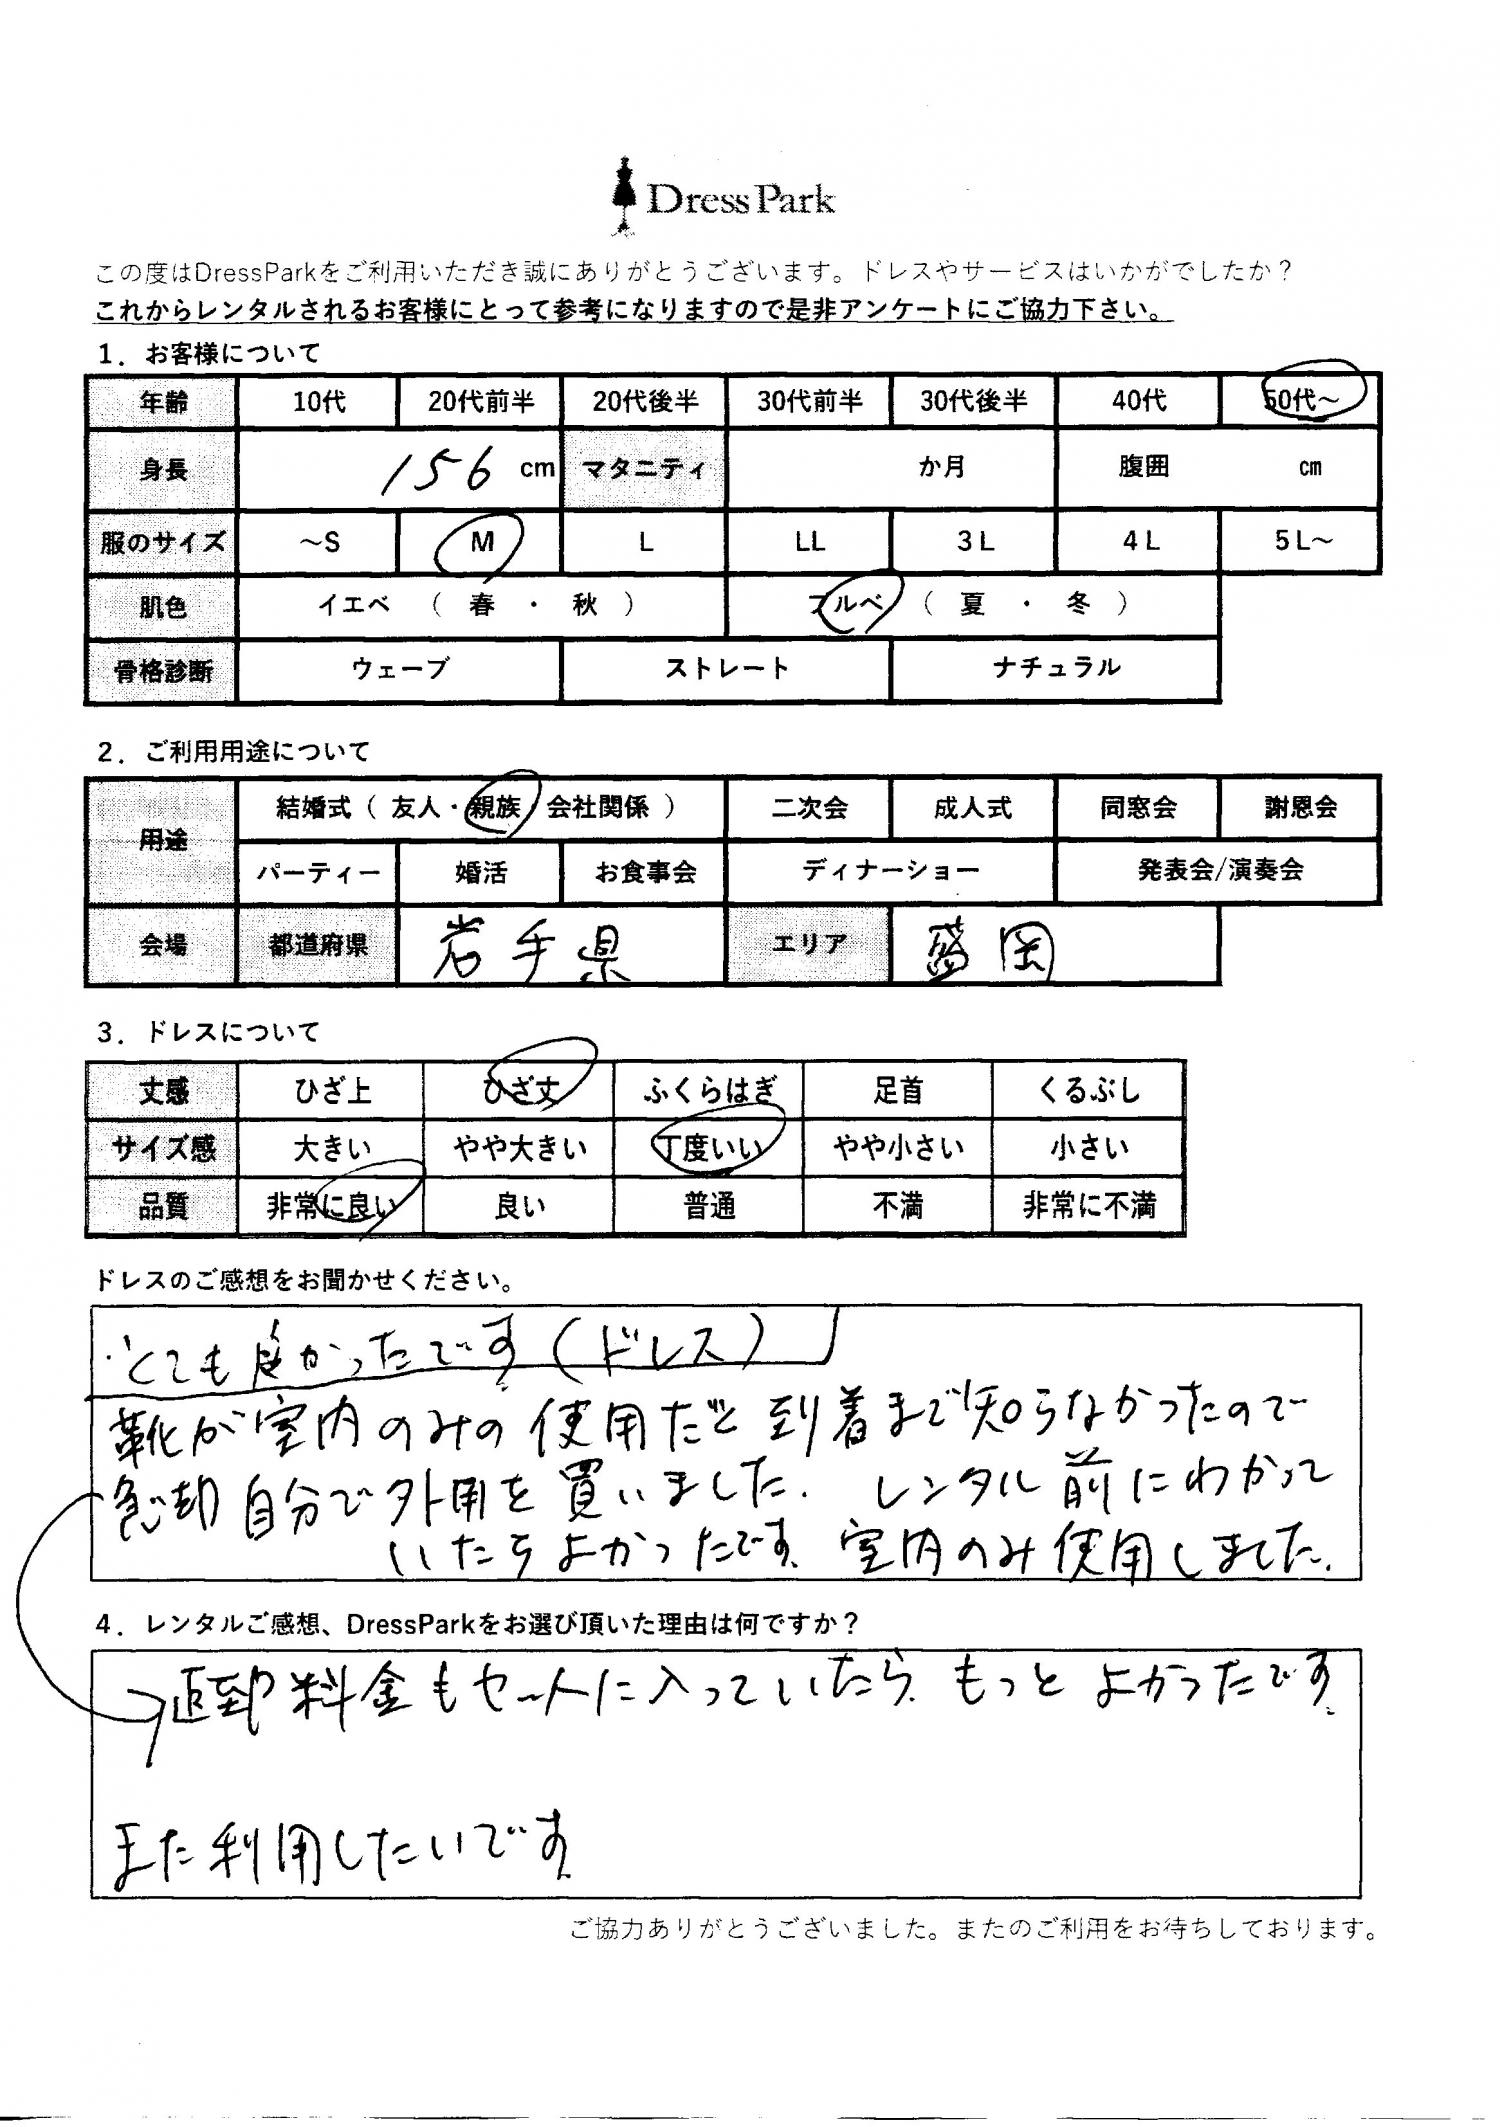 DressPark
この度はDressParkをご利用いただき誠にありがとうございます。ドレスやサービスはいかがでしたか？
これからレンタルされるお客様にとって参考になりますので是非アンケートにご協力下さい。
1．お客様について
年齢 10代 20代前半 20代後半 30代前半 30代後半 40代 50代～
身長 156 cm マタニティ か月 腹囲 cm
服のサイズ ～S M L LL 3L 4L 5L～
肌色 イエベ （ 春 ・ 秋 ） ブルベ （ 夏 ・ 冬 ）
骨格診断 ウェーブ ストレート ナチュラル
2．ご利用用途について
用途 結婚式（ 友人・親族・会社関係 ） 二次会 成人式 同窓会 謝恩会
パーティー 婚活 お食事会 ディナーショー 発表会/演奏会
会場 都道府県 岩手県 エリア 盛岡
3．ドレスについて
丈感 ひざ上 ひざ丈 ふくらはぎ 足首 くるぶし
サイズ感 大きい やや大きい 丁度いい やや小さい 小さい
品質 非常に良い 良い 普通 不満 非常に不満
ドレスのご感想をお聞かせください。
・とても良かったです（ドレス）
靴が室内のみの使用だと到着まで知らなかったので
急却自分で外用を買いました。レンタル前にわかって
いたらよかったです。室内のみ使用しました。
4．レンタルご感想、DressParkをお選び頂いた理由は何ですか？
返却料金もセットに入っていたら、もっとよかったです。
また利用したいです。
ご協力ありがとうございました。またのご利用をお待ちしております。